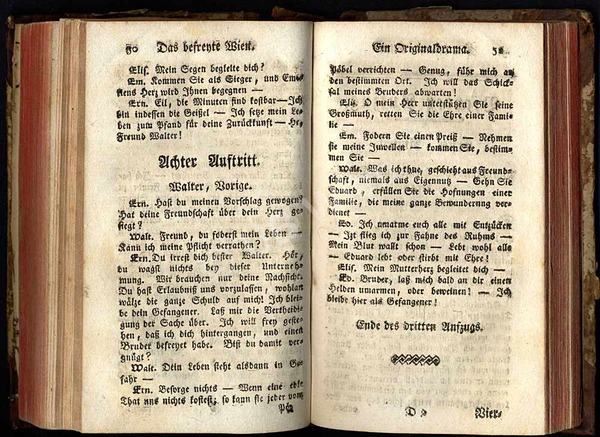 50 Das befreyte Wien.
Elis. Mein Segen begleite dich?
Em. Kommen Sie als Sieger, und Emi-
liens Herz wird Ihnen begegnen —
Ern. Eil, die Minuten sind kostbar—Ich
bin indessen die Geißel — Ich setze mein Le-
ben zum Pfand für deine Zurückkunft — He,
Freund Walter!
Achter Auftritt.
Walter, Vorige.
Ern. Hast du meinen Vorschlag gewogen?
Hat deine Freundschaft über dein Herz ge-
siegt?
Walt. Freund, du foderst mein Leben —
Kann ich meine Pflicht verrathen?
Ern. Du irrest dich bester Walter. Hör,
du wagst nichts bey dieser Unterneh-
mung. Wir brauchen nur deine Nachsicht.
Du hast Erlaubniß uns vorzulassen, wohlan
wälze die ganze Schuld auf mich! Ich blei-
be dein Gefangener. Laß mir die Vertheidi-
gung der Sache über. Ich will frey geste-
hen, daß ich dich hintergangen, und einen
Bruder befreyet habe. Bist du damit ver-
gnügt?
Walt. Dein Leben steht alsdann in Ge-
fahr —
Ern. Besorge nichts — Wenn eine edle
That uns nichts kostet, so kann sie jeder vom
Pö-
Ein Originaldrama. 51
Pöbel verrichten — Genug, führ mich an
den bestimmten Ort. Ich will das Schick-
sal meines Bruders abwarten!
Elis. O mein Herr unterstützen Sie seine
Großmuth, retten Sie die Ehre einer Fami-
lie —
Em. Fodern Sie einen Preiß — Nehmen
sie meine Juwellen — kommen Sie, bestim-
men Sie —
Walt. Was ich thue, geschieht aus Freund-
schaft, niemals aus Eigennutz — Gehn Sie
Eduard, erfüllen Sie die Hofnungen einer
Familie, die meine ganze Bewunderung ver-
dienet —
Ed. Ich umarme euch alle mit Entzücken
— Itzt flieg ich zur Fahne des Ruhms —
Mein Blut wallt schon — Lebt wohl alle
— Eduard lebt oder stirbt mit Ehre!
Elis. Mein Mutterherz begleitet dich —
Ed. Bruder, laß mich bald an dir einen
Helden umarmen, oder beweinen! — Ich
bleibe hier als Gefangener!
Ende des dritten Aufzugs.
D 2 Vier-